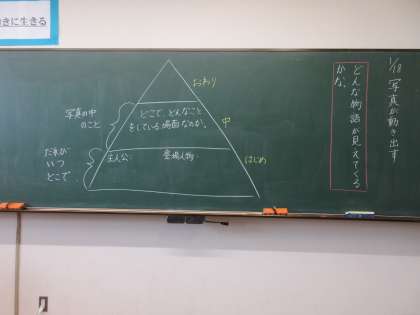 きに生きる
1/18 写真が動き出す
どんな物語が見えてくる
かな。
おわり
中
はじめ
どこで、どんなこと
をしている場面なのか。
主人公
登場人物
写真の中
のこと
だれが
いつ
どこで